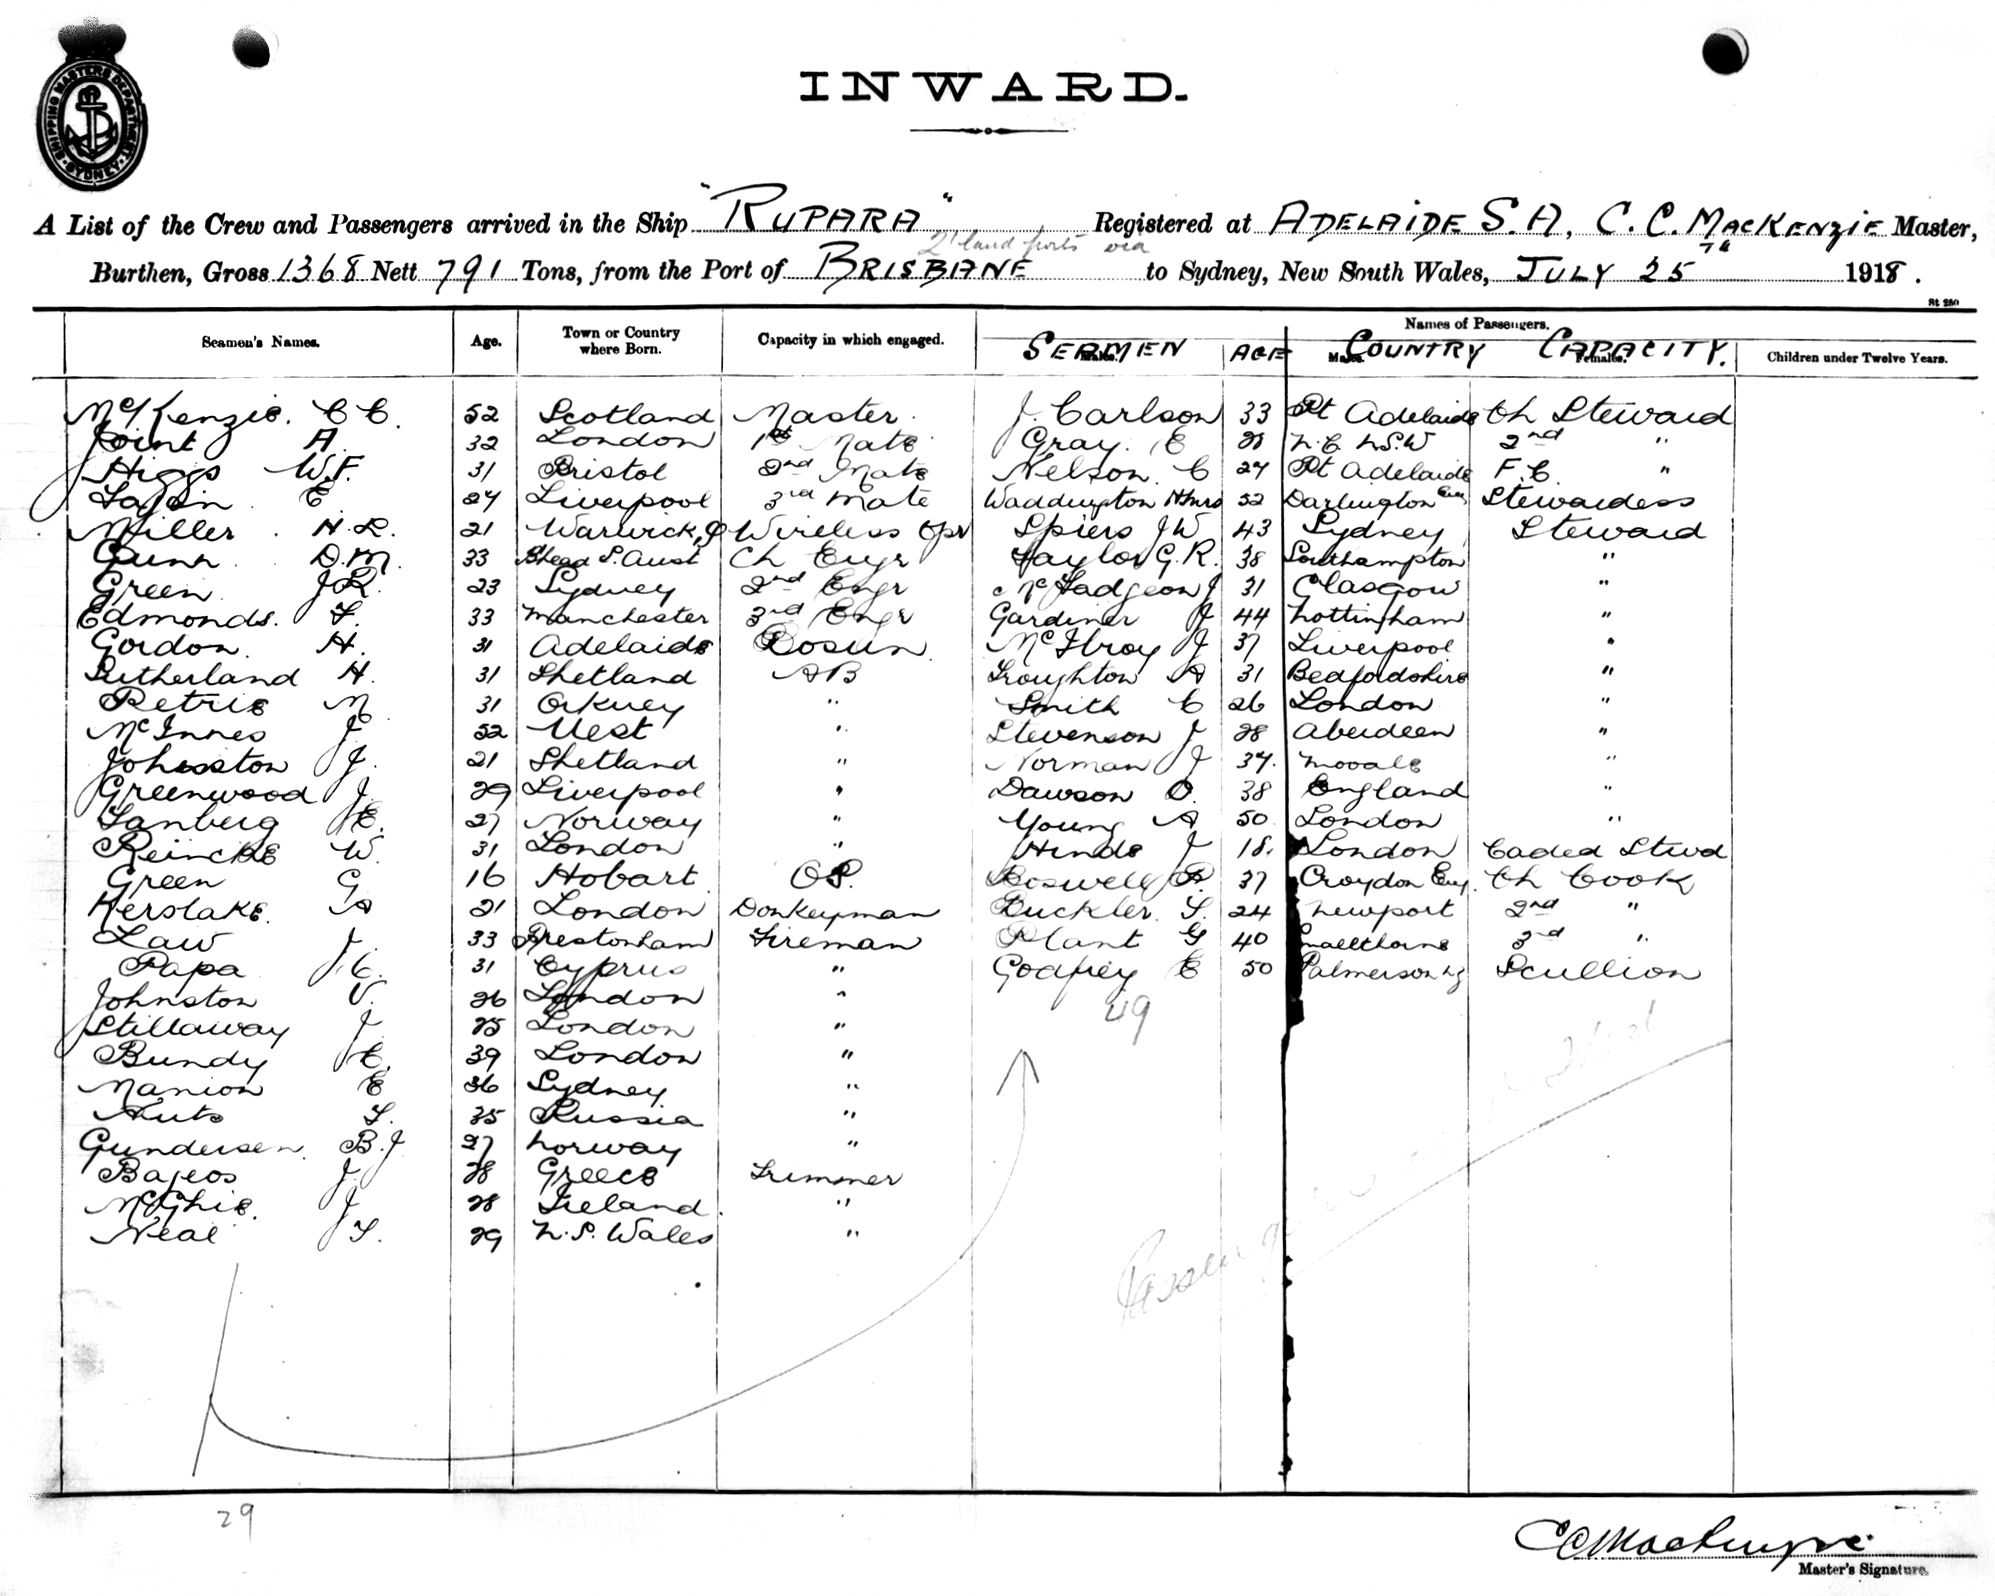 SHIPPING MASTERS DEPARTMENT. SYDNEY.
INWARD.
A List of the Crew and Passengers arrived in the Ship "RUPARA" Registered at ADELAIDE S.A, C. C. MACKENZIE Master,
Q'land ports via
Burthen, Gross 1368 Nett 791 Tons, from the Port of BRISBANE to Sydney, New South Wales, JULY 25TH 1918.
St 250
Seamen's Names. Age. Town or Country where Born. Capacity in which engaged. Names of Passengers.
SEAMEN AGE COUNTRY CAPACITY. Children under Twelve Years.
McKenzie. C C. 52 Scotland Master. J. Carlson 33 Pt Adelaide Ch Steward
Joint A. 32 London 1st Mate Gray. E 28 N.C. N.S.W 2nd "
Higgs W.F. 31 Bristol 2nd Mate Nelson. C 27 Pt Adelaide F.C. "
E 27 Liverpool 3rd Mate Waddington 52 Darlington Eng Stewardess
Miller. H.L. 21 Warwick, Q Wireless Opr Spiers J W 43 Sydney Steward
Gunn D.M. 33 S. Aust Ch Engr Taylor G. R. 38 Southampton "
Green J.R. 23 Sydney 2nd Engr McFadgeon J 31 Glasgow "
Edmonds. F. 33 Manchester 3rd Engr Gardiner J 44 Nottingham "
Gordon. H. 31 Adelaide Bosun McIlroy J 37 Liverpool "
Sutherland H. 31 Shetland AB Troughton A 31 Bedfordshire "
Petrie M 31 Orkney " Smith C 26 London "
McInnes J. 52 Uest " Stevenson J 28 Aberdeen "
Johnston J. 21 Shetland " Norman J 37. "
Greenwood J. 29 Liverpool " Dawson O. 38 England "
Sanberg E. 27 Norway " Young A 50 London "
Reincke W. 31 London " Hinds J 18. London Caded Stwd
Green G 16 Hobart. OS. Boswell P. 37 Croydon Eng. Ch Cook
Kerslake. A 21 London Donkeyman Buckler. S. 24 Newport 2nd "
Law J. 33 Prestonham Fireman Plant G 40 Smallthorne 3rd "
Papa J.C. 31 Cyprus " Godfrey E 50 Palmerson NZ Scullion
Johnston V. 26 London "
Stillaway J. 25 London "
Bundy C. 39 London "
Manion E 36 Sydney "
F. 35 Russia "
Gundersen. B.J 27 Norway "
Bajeos J. 28 Greece Trimmer
McGhie. J 28 Ireland. "
Neal J F. 29 N.S. Wales "
29
Passengers
29
C C Mackenzie
Master's Signature.